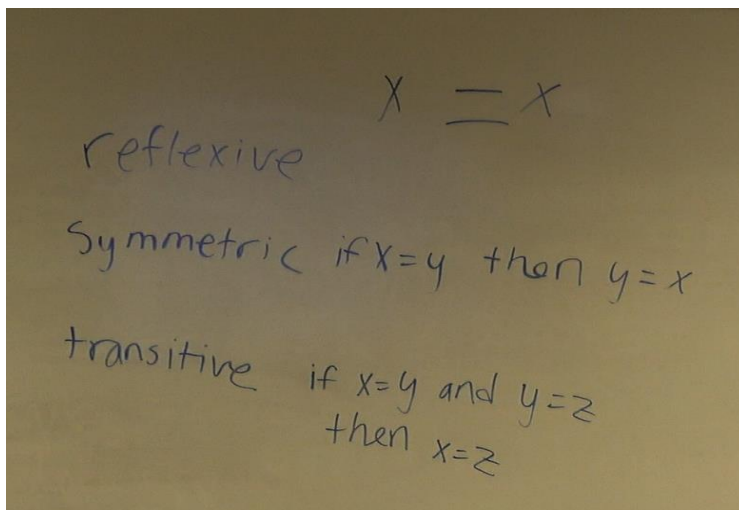 x = x
reflexive
Symmetric if x=y then y=x
transitive if x=y and y=z
then x=z